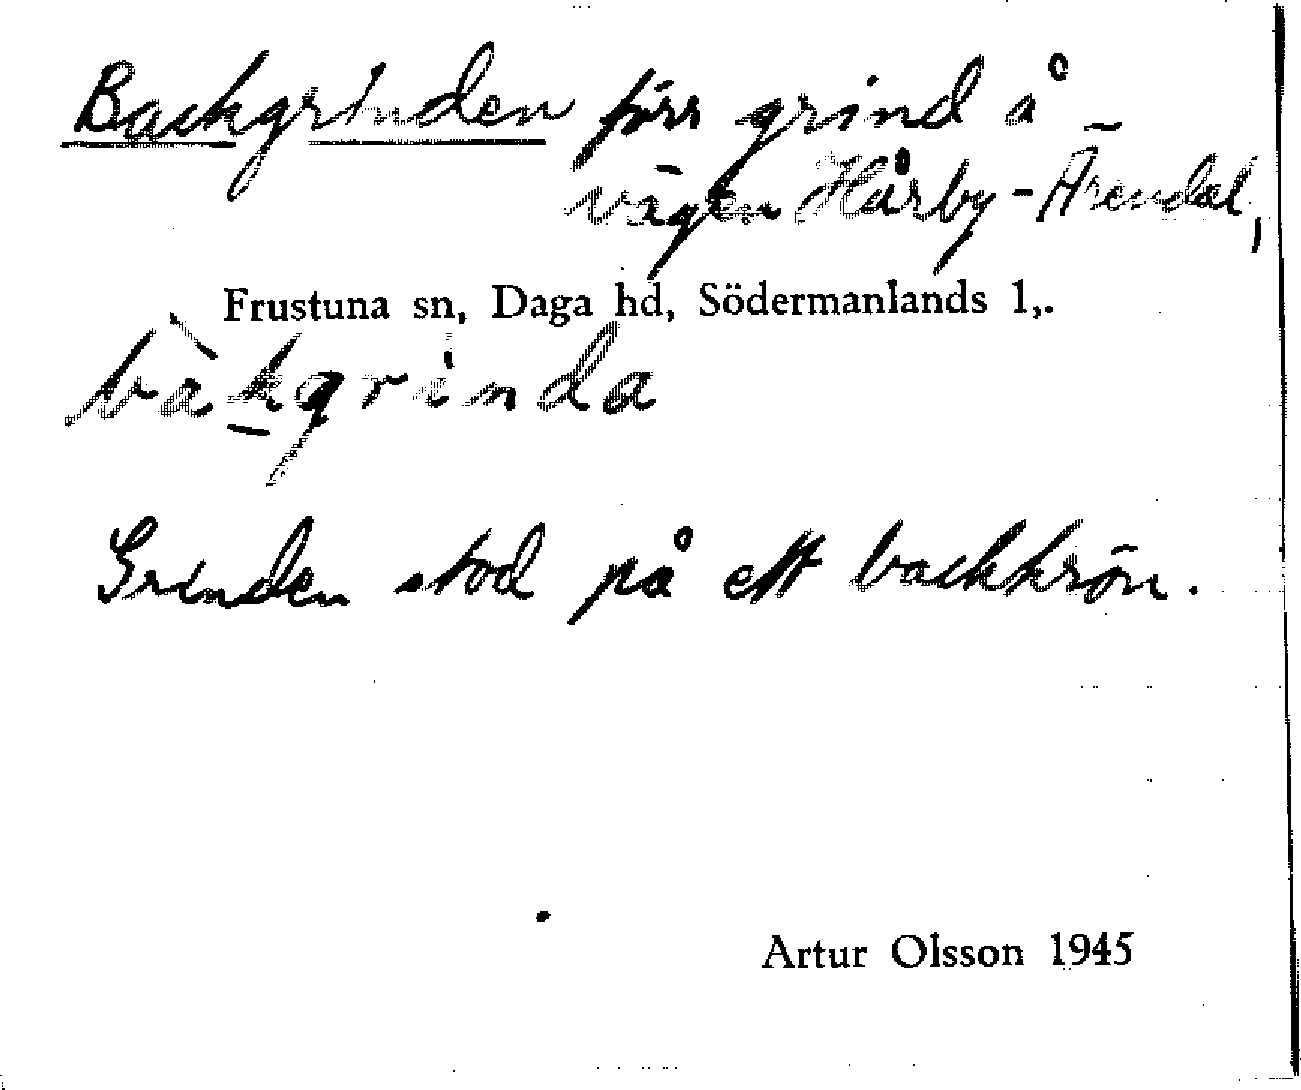 Backgrinden förr grind å
vägen Hårby - Ärendal,
Frustuna sn, Daga hd, Södermanlands l,.
bàkgrinda
Grinden stod på ett backkrön.
Artur Olsson 1945